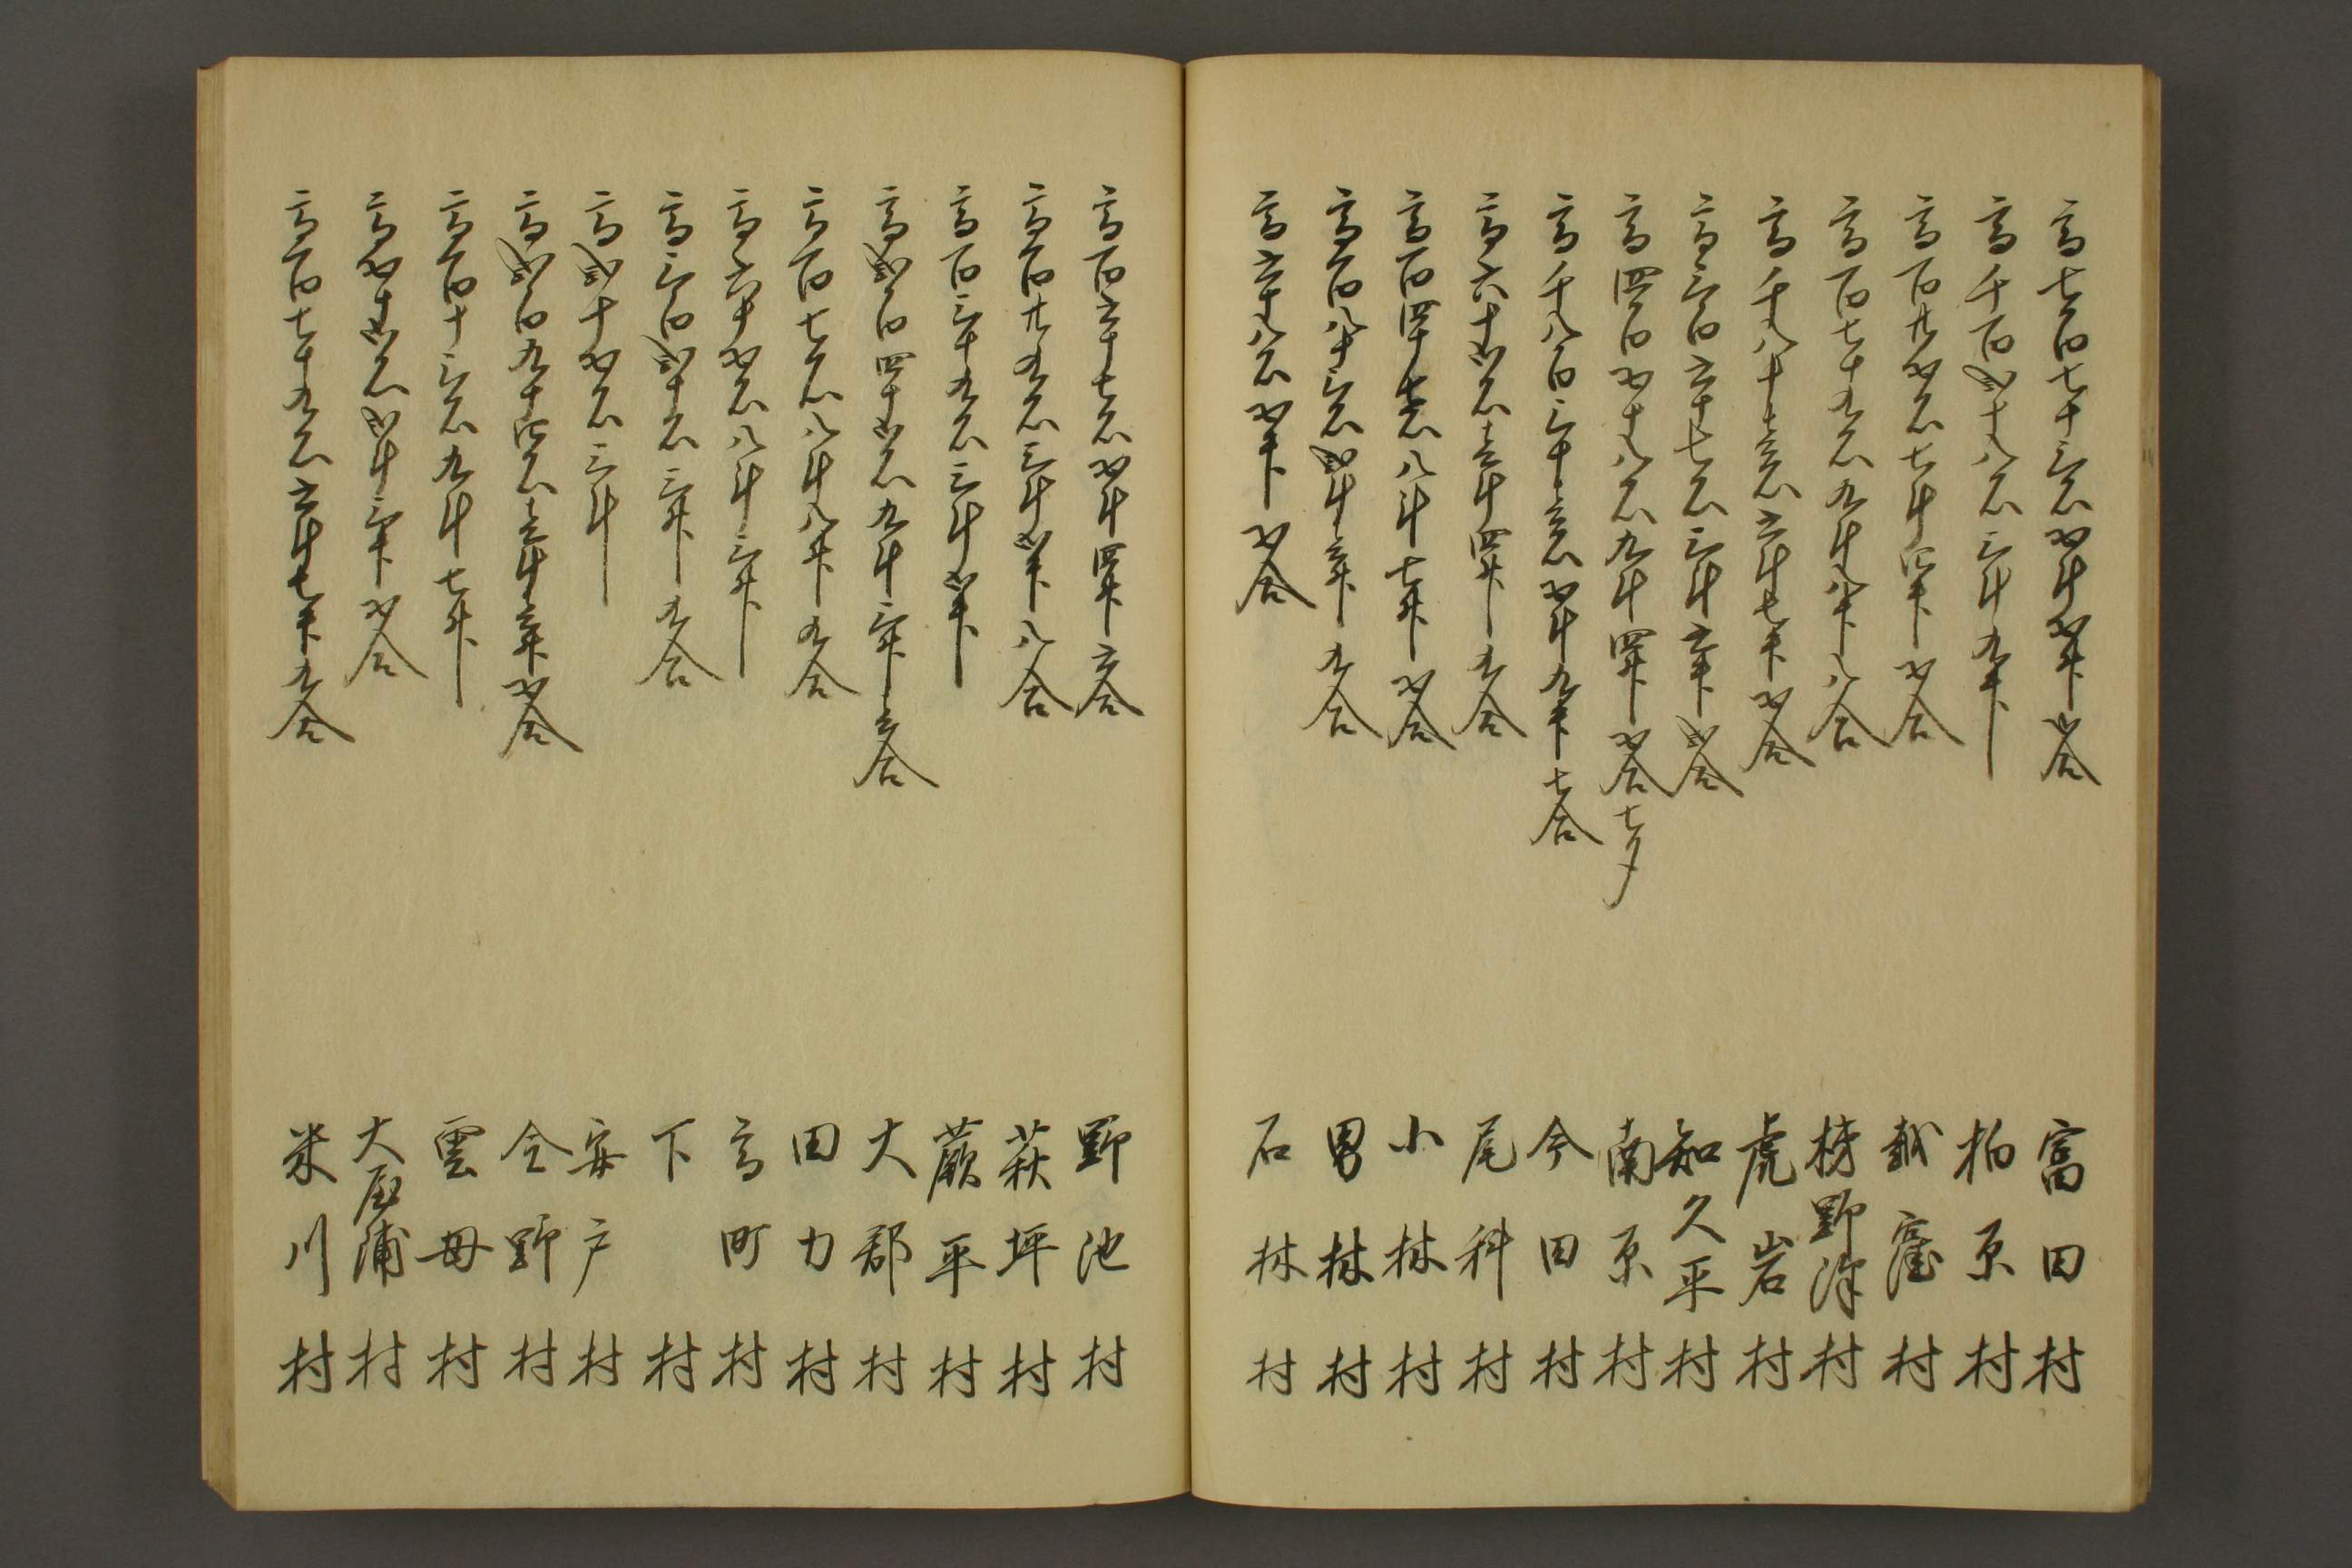 高七百七十三石五斗五升弐合 富田村
高千百弐十八石三斗九升 柏原村
高百廿五石七斗四升五合 越窪村
高百七十九石九斗八升八合 村
高千八十壱石六斗七升五合 虎岩村
高三百六十七石三斗六升弐合 知久平村
高四百五十八石九斗四升五合七夕 南原村
高千八百三十壱石五斗九升七合 今田村
高六十弐石壱斗四升九合 尾科村
高百四十壱石八斗七升五合 小林村
高百八十三石弐斗壱升九合 男林村
高六十八石五升五合 石林村
高百六十七石五斗四升六合 野池村
高百廿九石三斗弐升八合 萩坪村
高百三十九石三斗弐升 蕨平村
高弐百四十弐石九斗三升壱合 大郡村
高百七石八斗八升九合 田力村
高六十五石八斗三升 高町村
高三百弐十石三升九合 下村
高弐十五石三斗 安戸村
高弐百九十四石壱斗壱升五合 今野村
高百十三石九斗七升 雲母村
高五十弐石弐斗三升五合 大屋浦村
高百七十九石六斗七升九合 米川村